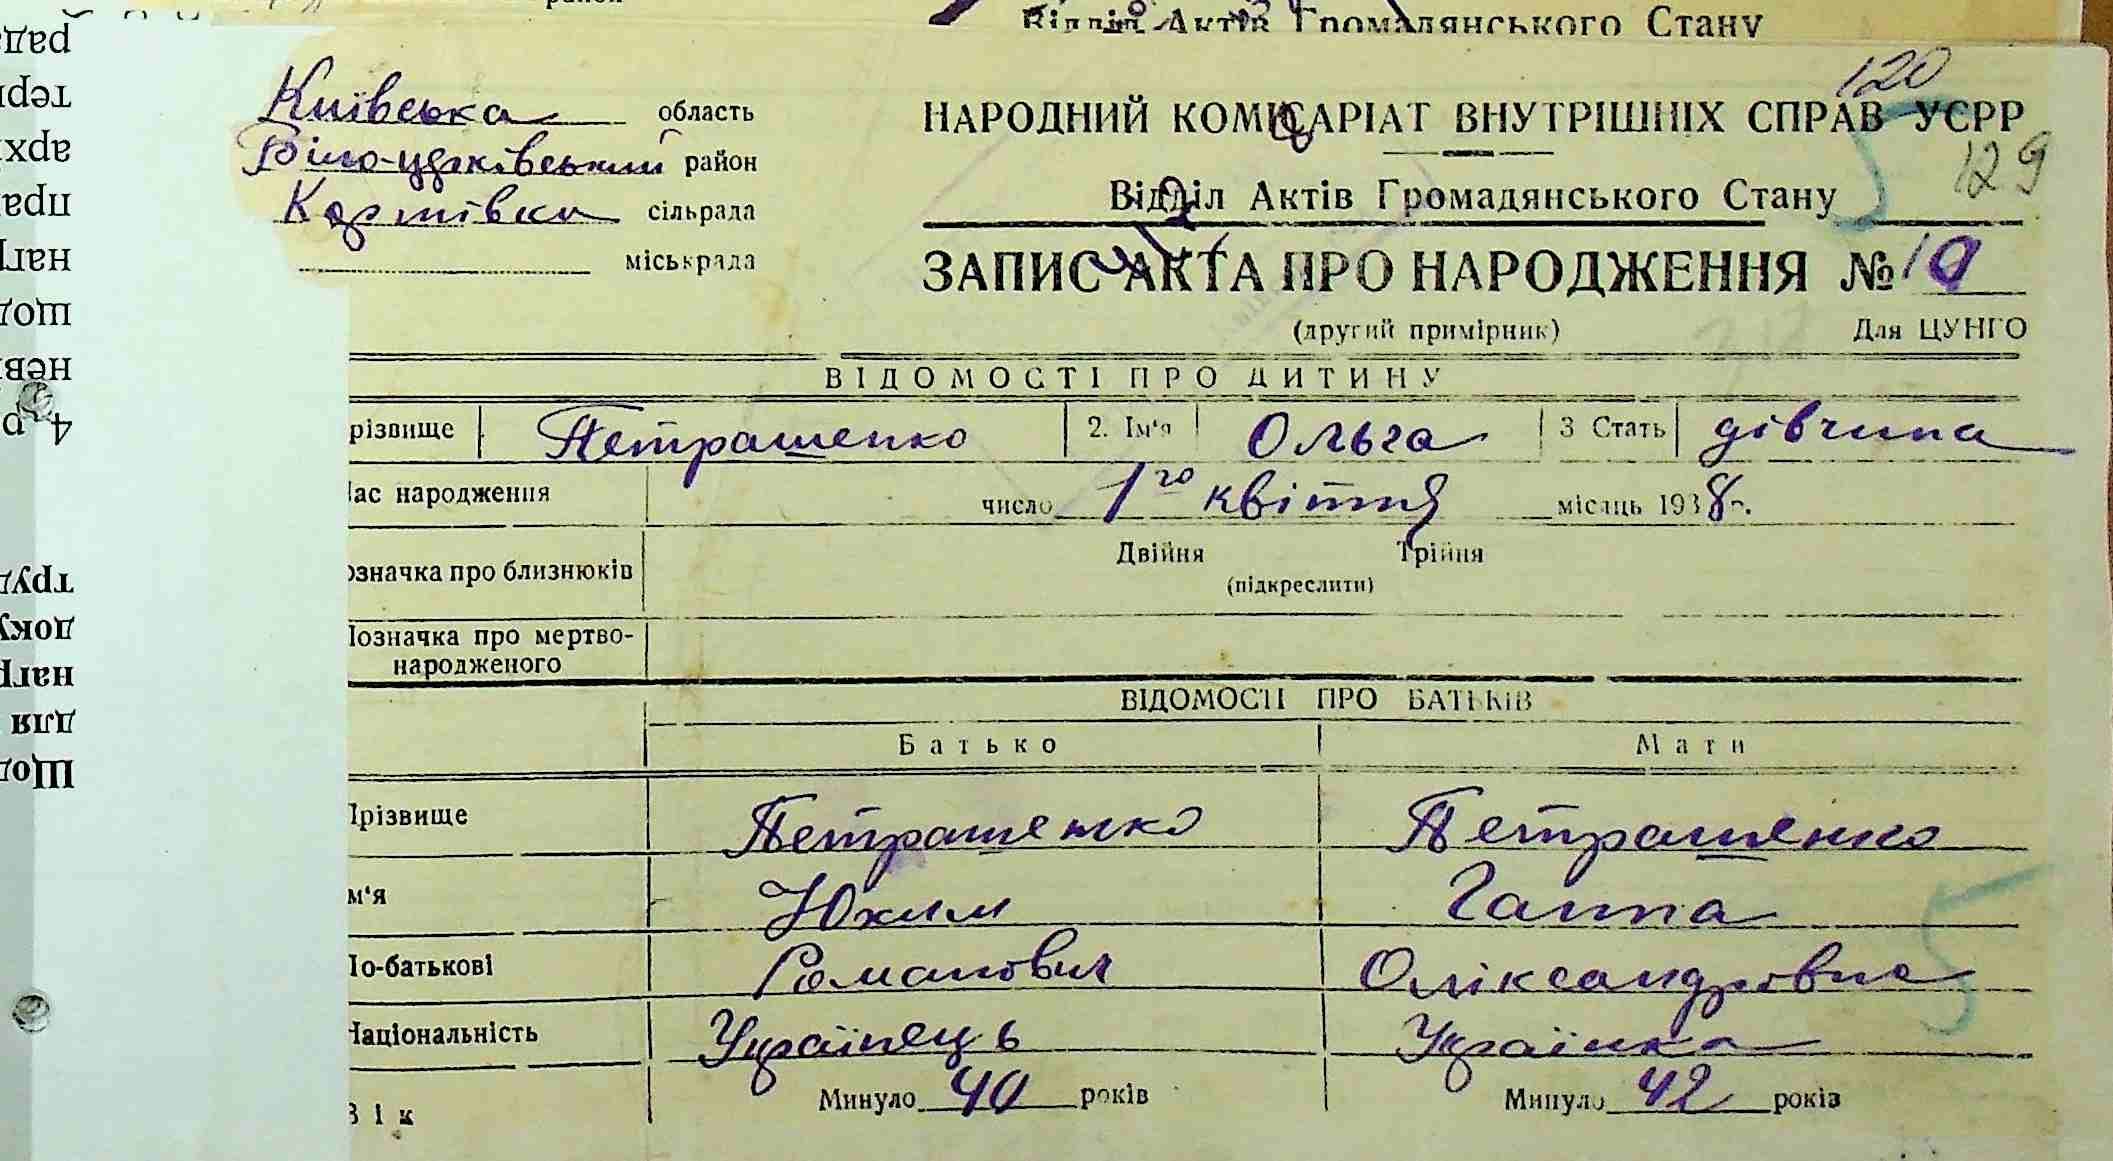 Відділ Актів Громадянського Стану
Київська область
Біло-церківський район
сільрада
міськрада
120
НАРОДНИЙ КОМІСАРІАТ ВНУТРІШНІХ СПРАВ УСРР
129
Відділ Актів Громадянського Стану
ЗАПИС АКТА ПРО НАРОДЖЕННЯ № 10
(другий примірник) Для ЦУНГО
ВІДОМОСТІ ПРО ДИТИНУ
різвище Петрашенко 2. Ім'я Ольга 3 Стать дівчина
ас народження число 1го квітня місяць 1938 р.
означка про близнюків Двійня Трійня
(підкреслити)
Позначка про мертво-
народженого
ВІДОМОСТІ ПРО БАТЬКІВ
Батько Мати
Прізвище Петрашенко Петрашенко
м'я Юхим Ганна
По-батькові Романович Оліксандровна
Національність Українець Українка
Вік Минуло 40 років Минуло 42 років